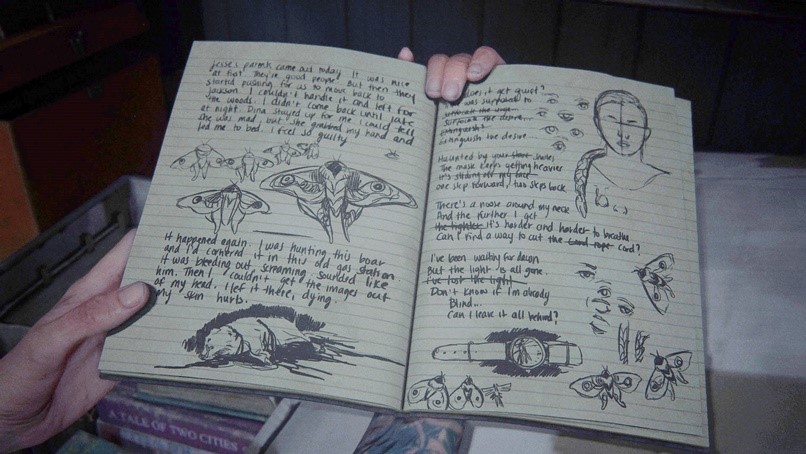 Jesse's parents came out today. It was nice
at first. They're good people. But then they
started pushing for us to move back to
Jackson. I couldn't handle it and left for
the woods. I didn't come back until late
at night. Dina stayed up for me. I could tell
she was mad, but she grabbed my hand and
led me to bed. I feel so guilty.
It happened again. I was hunting this boar
and I'd cornered it in this old gas station.
It was bleeding out, screaming, sounded like
him. Then I couldn't get the images out
of my head. I left it there, dying.
My skin hurts.
does it get quiet?
was supposed to
Surround the desire
Extinguish?
Extinguish the desire
Haunted by your shoes
The mask keeps getting heavier
It's sliding off my face
one step forward, two steps back
There's a noose around my neck
And the further I get
the tighter it's harder and harder to breathe
Can I find a way to cut the rope cord?
I've been waiting for dawn
But the light is all gone
I've lost the light
Don't know if I'm already
Blind...
Can I leave it all behind?
A TALE OF TWO CITIES